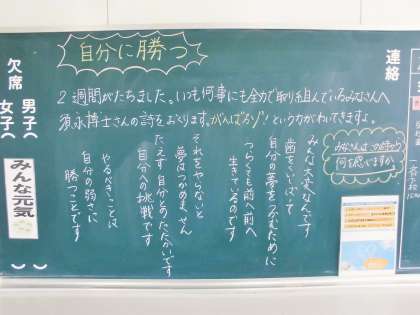 自分に勝つ
2週間がたちました。いつも何事にも全力で取り組んでいるみなさんへ
須永博士さんの詩をおくります。がんばるゾ!という力がわいてきますよ。
みんな大変なんです
歯をくいしばって
自分の夢をつかむために
つらくても前へ前へ
生きているのです
それをやらないと
夢はつかめません
たえず自分とのたたかいです
自分への挑戦です
やるべきことは
自分の弱さに
勝つことです
連絡
みなさんはこの詩から
何を感じますか
欠席
男子(
女子(
みんな元気